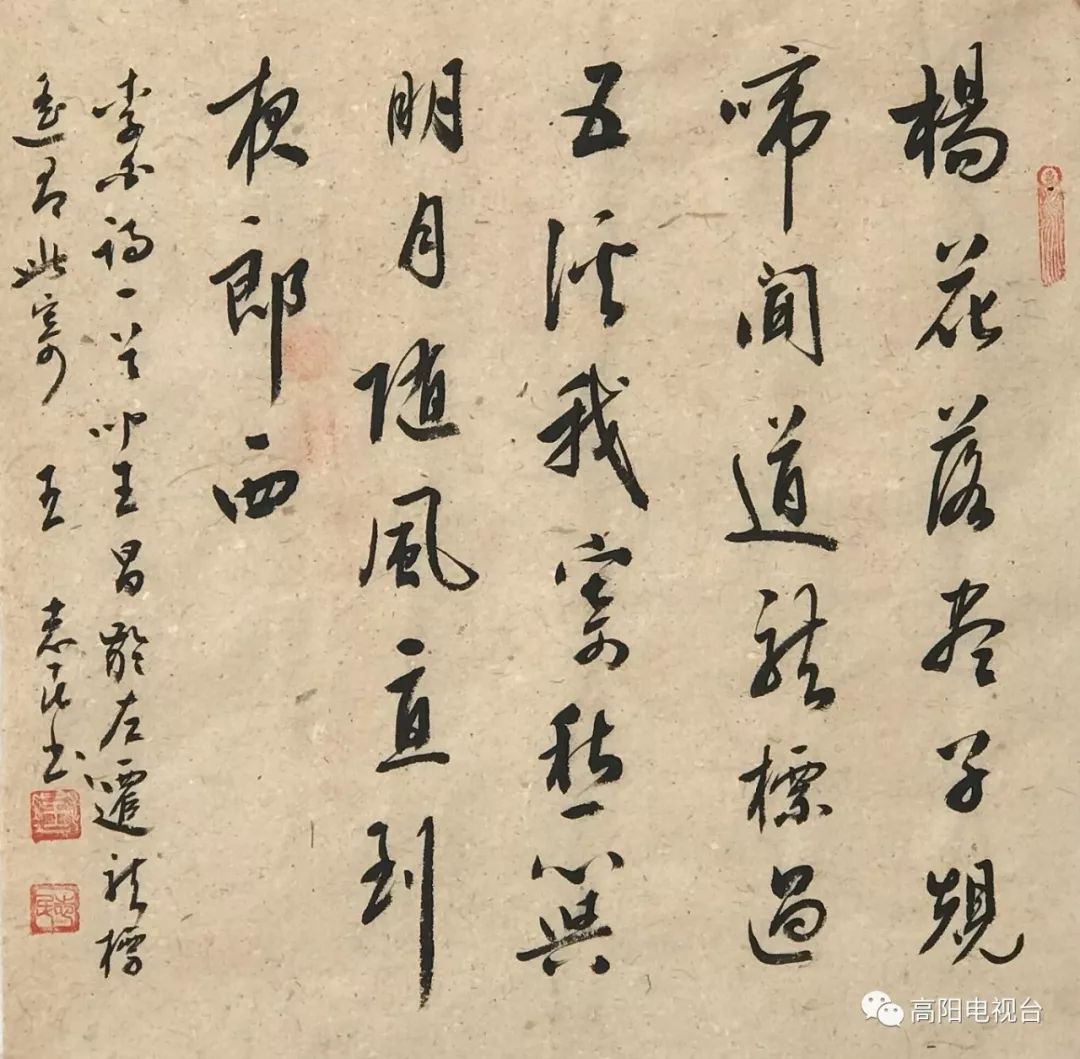 楊花落尽子規
啼聞道龍標過
五溪我寄愁心與
明月随風直到
夜郎西
李白詩一首王昌齡左遷龍標
遥有此寄 王志民书
志民
高阳电视台